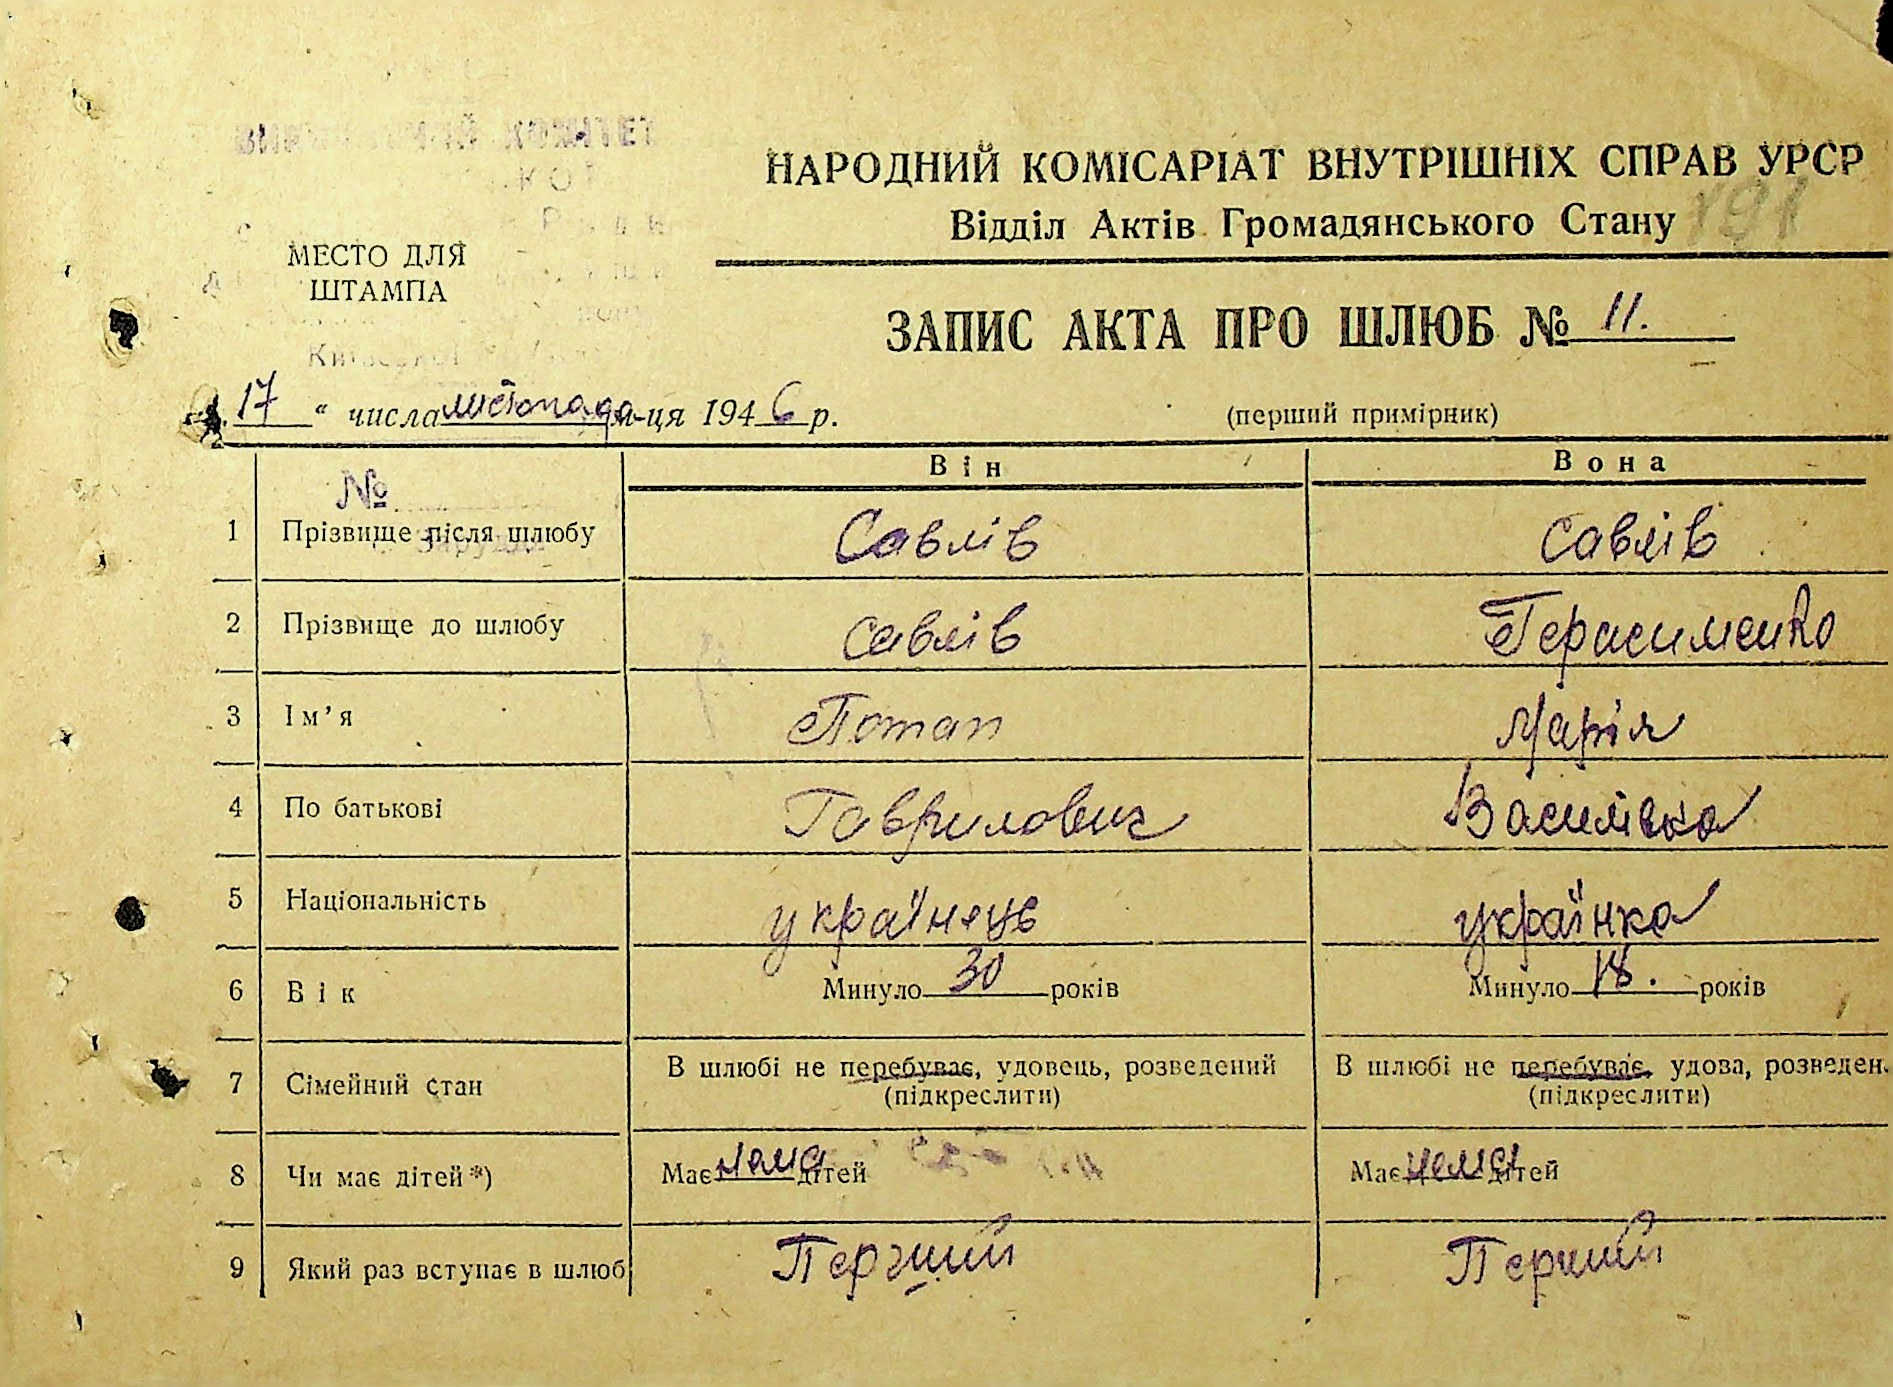 КОМІТЕТ
НАРОДНИЙ КОМІСАРІАТ ВНУТРІШНІХ СПРАВ УРСР
191
Відділ Актів Громадянського Стану
МЕСТО ДЛЯ
ШТАМПА
ЗАПИС АКТА ПРО ШЛЮБ № 11.
17 " числа листопада м-ця 1946 р.
(перший примірник)
Він Вона
№
1 Прізвище після шлюбу Савлів Савлів
2 Прізвище до шлюбу Савлів Герасименко
3 Ім'я Потап Марія
4 По батькові Гаврилович Василівна
5 Національність українець українка
6 Вік Минуло 30 років Минуло 18. років
7 Сімейний стан В шлюбі не перебуває, удовець, розведений В шлюбі не перебуває, удова, розведен.
(підкреслити) (підкреслити)
8 Чи має дітей*) Має нема дітей Має нема дітей
9 Який раз вступає в шлюб Перший Перший